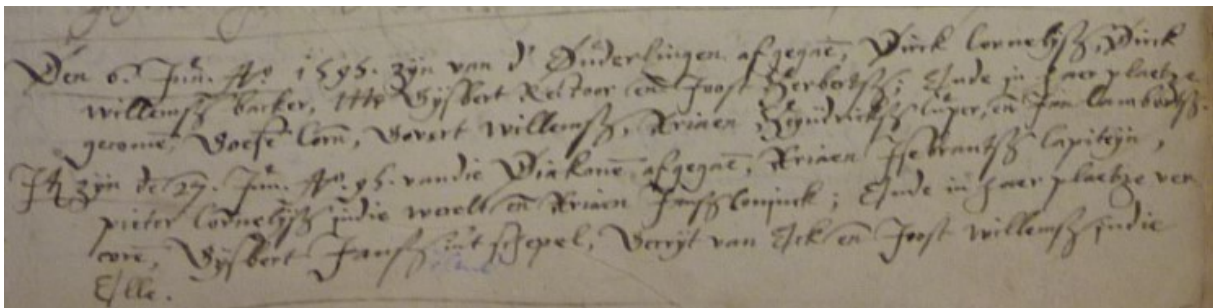 Den 6. Jun. Aº 1595. zijn van d' Ouderlingen afgegaē, Dirck Cornelisz, Dirck
Willemsz backer, Mr Gijsbert Rectoor ende Joost Gerbertsz; Ende in haer plaetze
gecomē, Corn, Govert Willemsz, Ariaen Heyndricksz Cuper, en Jan Lambertsz.
zijn de 27. Jun. Aº. 95. vandie Diakonē afgegaē, Ariaen Isebrantsz Capiteijn,
pieter Cornelisz indie werelt en Ariaen Jansz Coninck; Ende in haer plaetze ver
corē, Gijsbert Jansz int schepel, Gerrijt van Eck en Joost Willemsz indie
Elle.